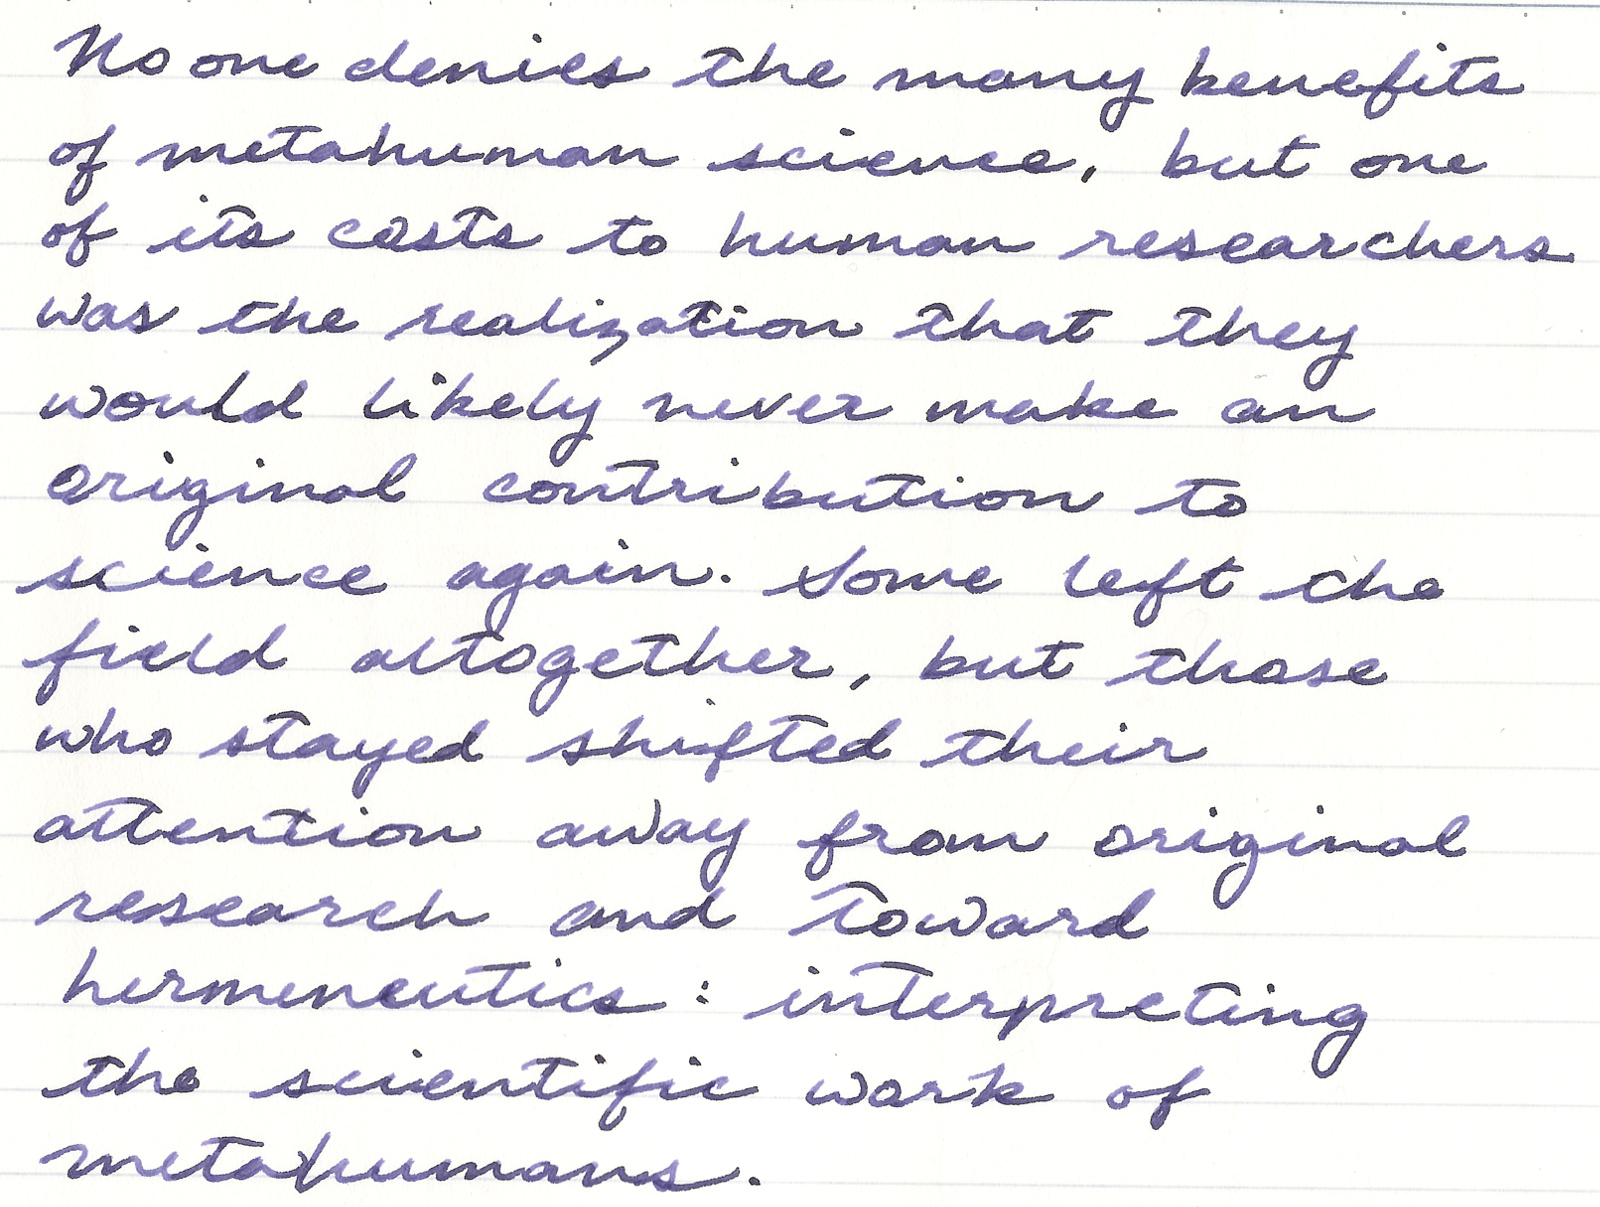 No one denies the many benefits
of metahuman science, but one
of its costs to human researchers
was the realization that they
would likely never make an
original contribution to
science again. Some left the
field altogether, but those
who stayed shifted their
attention away from original
research and toward
hermeneutics: interpreting
the scientific work of
metahumans.